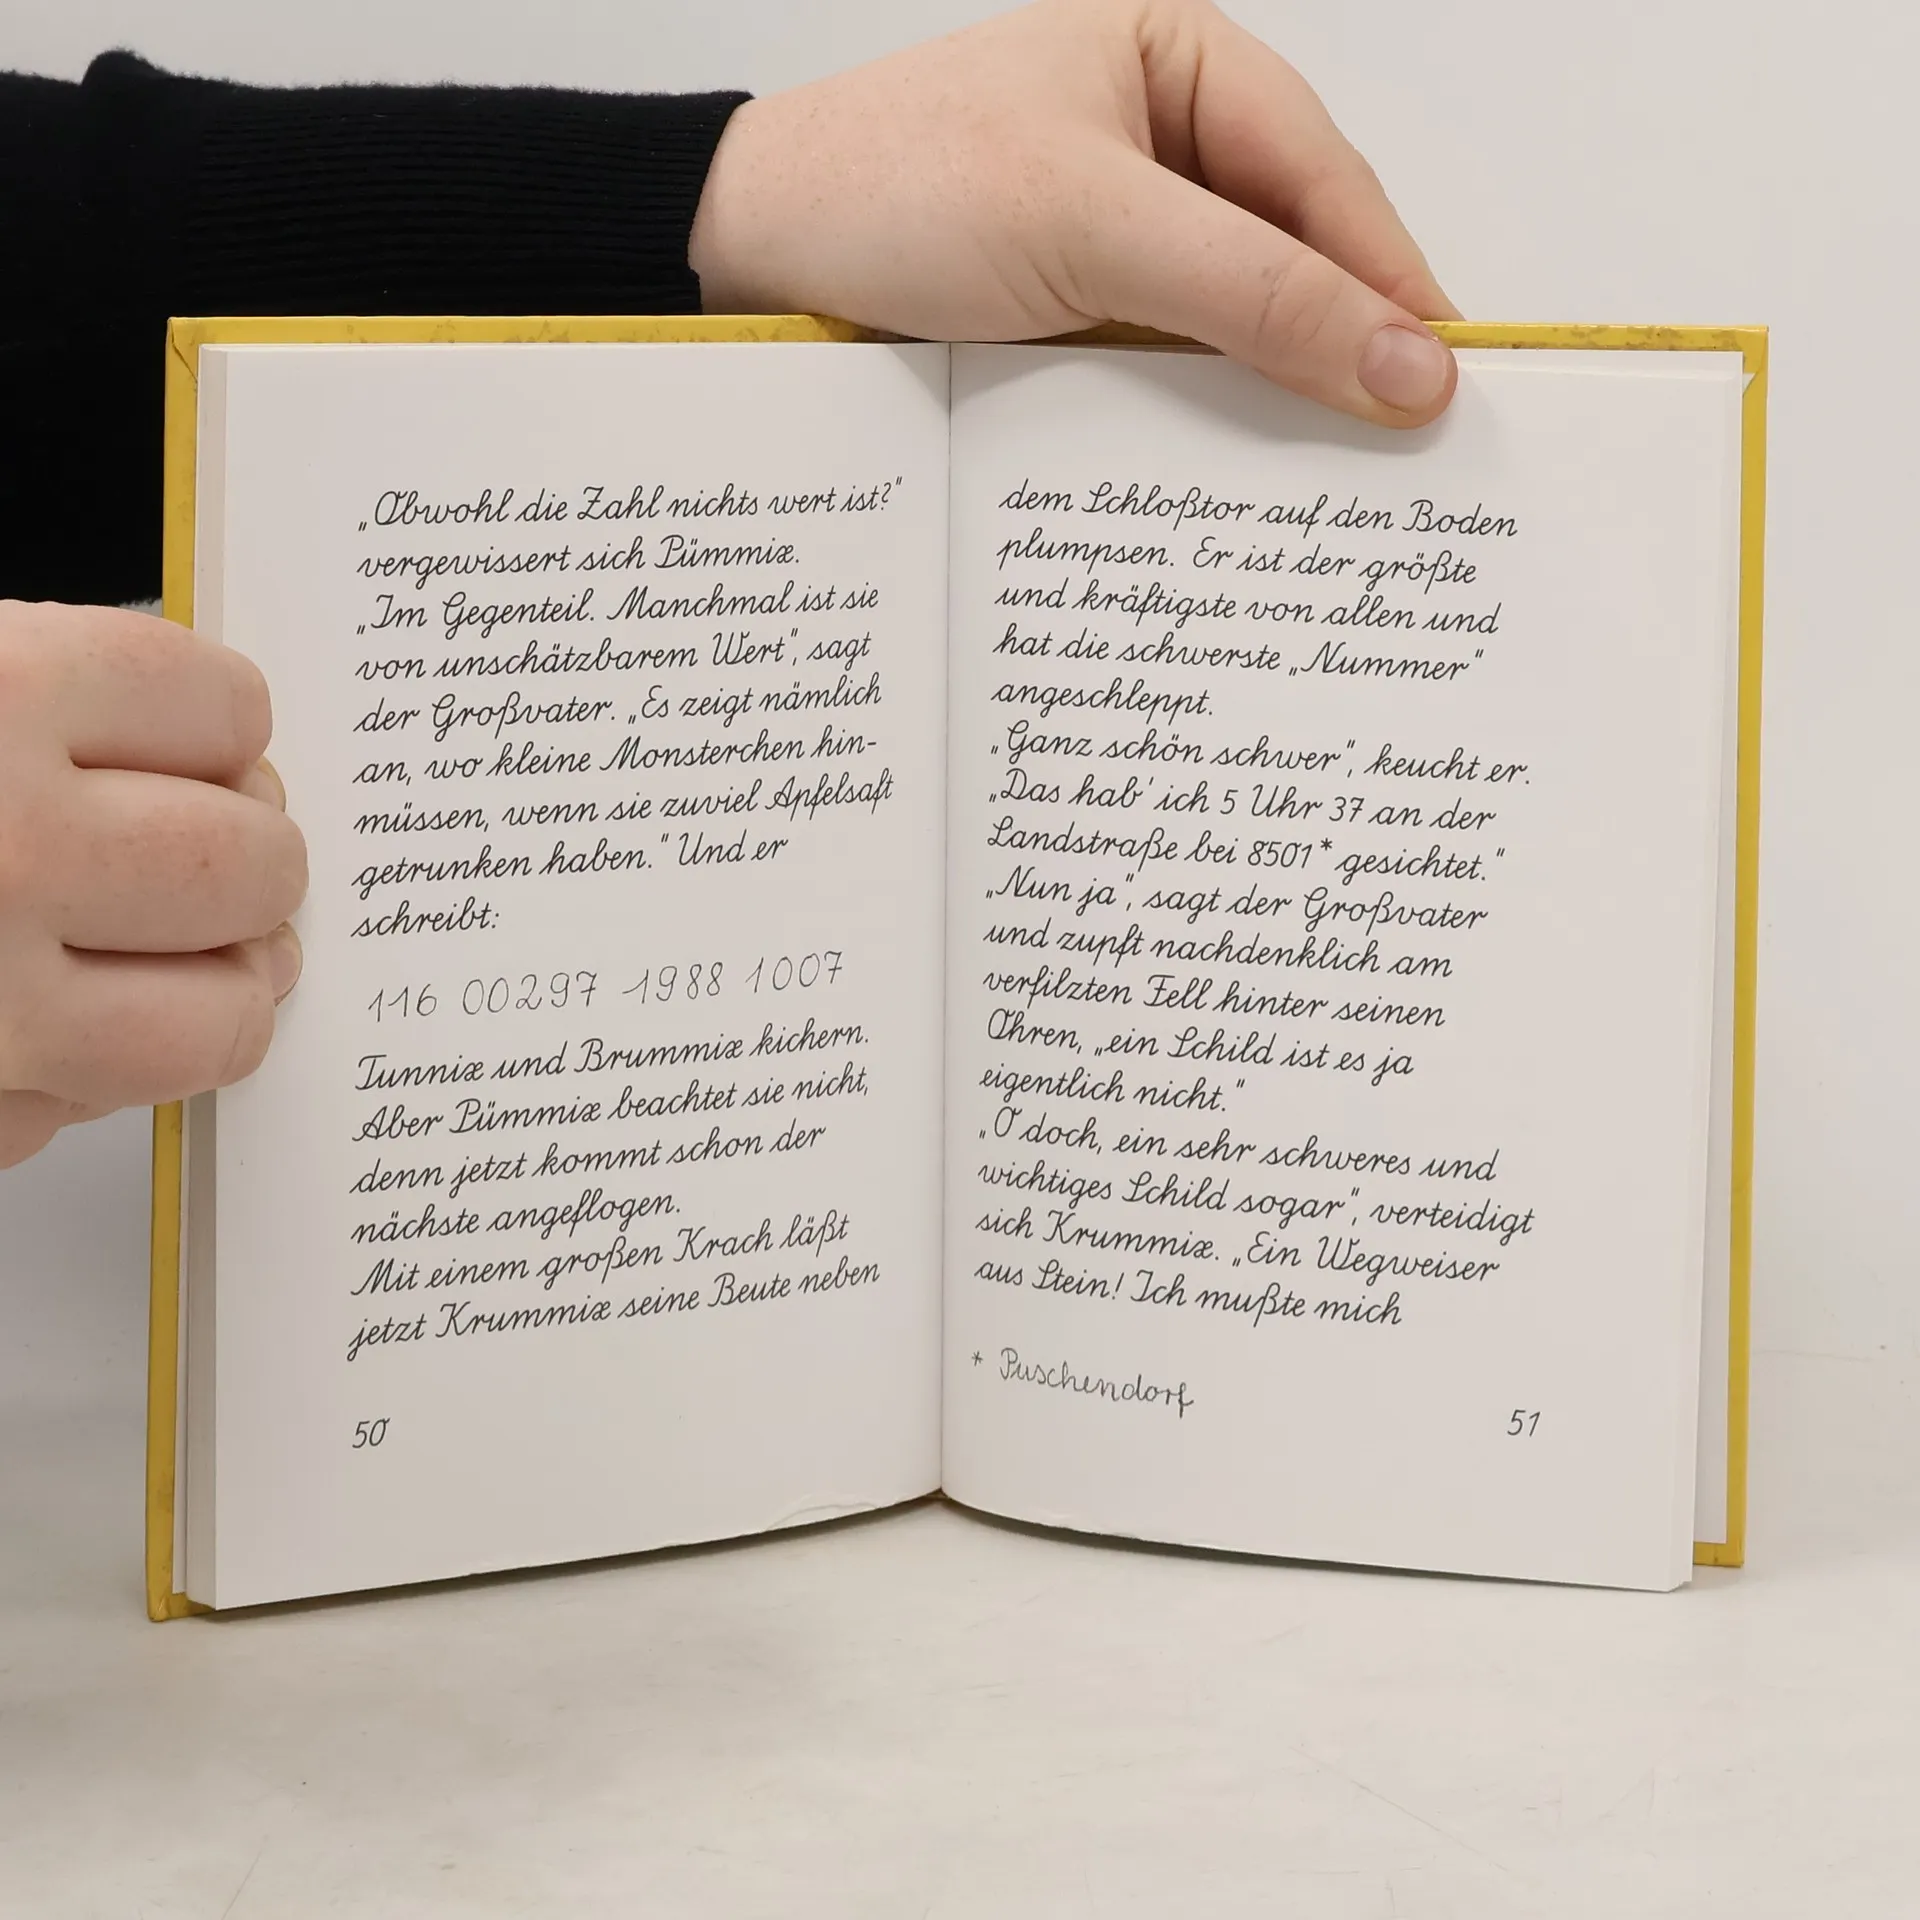 „Obwohl die Zahl nichts wert ist?"
vergewissert sich Pümmix.
„Im Gegenteil. Manchmal ist sie
von unschätzbarem Wert", sagt
der Großvater. „Es zeigt nämlich
an, wo kleine Monsterchen hin-
müssen, wenn sie zuviel Apfelsaft
getrunken haben." Und er
schreibt:
116 00297 1988 1007
Tunnix und Brummix kichern.
Aber Pümmix beachtet sie nicht,
denn jetzt kommt schon der
nächste angeflogen.
Mit einem großen Krach läßt
jetzt Krummix seine Beute neben
50
dem Schloßtor auf den Boden
plumpsen. Er ist der größte
und kräftigste von allen und
hat die schwerste „Nummer"
angeschleppt.
„Ganz schön schwer", keucht er.
„Das hab' ich 5 Uhr 37 an der
Landstraße bei 8501* gesichtet."
„Nun ja", sagt der Großvater
und zupft nachdenklich am
verfilzten Fell hinter seinen
Ohren, „ein Schild ist es ja
eigentlich nicht."
„O doch, ein sehr schweres und
wichtiges Schild sogar", verteidigt
sich Krummix. „Ein Wegweiser
aus Stein! Ich mußte mich
* Puschendorf
51